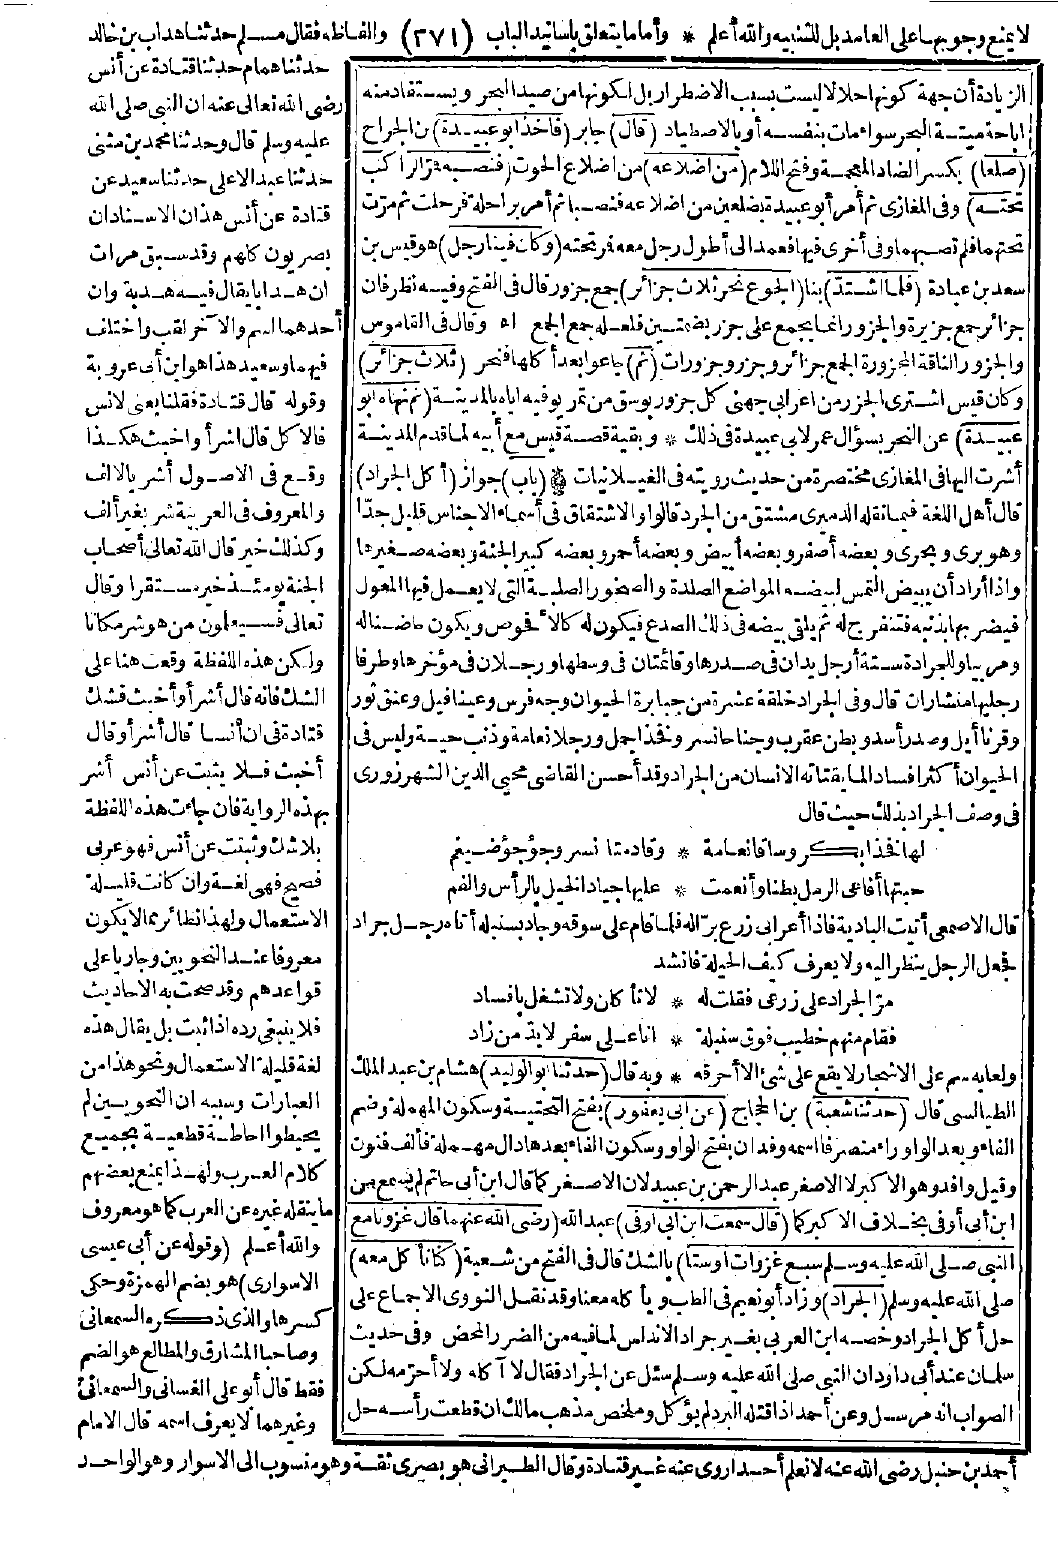 لا يمنع وجوبهما على العامد بل للتنبيه والله أعلم * وأما ما يتعلق بأسانيد الباب (٢٧١) وألفاظه فقال مسلم حدثنا هداب بن خالد
الزيادة أن جهة كونها حلالا ليست بسبب الاضطرار بل لكونها من صيد البحر ويستفاد منه
اباحة ميتة البحر سواء مات بنفسه أو بالاصطياد (قال) جابر (فأخذ أبو عبيدة) بن الجراح
(ضلعا) بكسر الضاد المعجمة وفتح اللام (من اضلاعه) من اضلاع الحوت (فنصبه فمر الراكب
تحته) وفى المغازى ثم أمر أبو عبيدة بضلعين من اضلاعه فنصبا ثم أمر براحلة فرحلت ثم مرت
تحتهما فلم تصبهما وفى أخرى فيها فعمد الى أطول رجل معه فمر تحته (وكان فينا رجل) هو قيس بن
سعد بن عبادة (فلما اشتد) بنا (الجوع نحر ثلاث جزائر) جمع جزور قال فى الفتح وفيه نظر فان
جزائر جمع جزيرة والجزور انما يجمع على جزر بضمتين فلعله جمع الجمع اه وقال فى القاموس
والجزور الناقة المجزورة الجمع جزائر وجزر وجزورات (ثم) جاعوا بعد أكلها فنحر (ثلاث جزائر)
وكان قيس اشترى الجزر من اعرابى جهنى كل جزور بوسق من تمر يوفيه اياه بالمدينة (ثم نهاه ابو
عبيدة) عن النحر بسؤال عمر لابى عبيدة فى ذلك * وبقية قصة قيس مع أبيه لما قدم المدينة
أشرت اليها فى المغازى مختصرة من حديث رويته فى الغيلانيات * (باب) جواز (أكل الجراد)
قال أهل اللغة فيما نقله الدميرى مشتق من الجرد قالوا والاشتقاق فى أسماء الاجناس قليل جدّا
وهو برى وبحرى وبعضه أصفر وبعضه أبيض وبعضه أحمر وبعضه كبير الجثة وبعضه صغيرها
واذا أراد أن يبيض التمس لبيضه المواضع الصلدة والصخور الصلبة التى لا يعمل فيها المعول
فيضربها بذنبه فتنفرج له ثم يلقى بيضه فى ذلك الصدع فيكون له كالأفحوص ويكون حاضنا له
ومربيا وللجرادة ستة أرجل يدان فى صدرها وقائمتان فى وسطها ورجلان فى مؤخرها وطرفا
رجليها منشاران قال وفى الجراد خلقة عشرة من جبابرة الحيوان وجه فرس وعينا فيل وعنق ثور
وقرنا أيل وصدر أسد وبطن عقرب وجناحا نسر وفخذا جمل ورجلا نعامة وذنب حية وليس فى
الحيوان أكثر افسادا لما يقتاته الانسان من الجراد وقد أحسن القاضى محيى الدين الشهرزورى
فى وصف الجراد بذلك حيث قال
لها فخذا بكر وساقا نعامة * وقادمتا نسر وجؤجؤ ضيغم
حبتها أفاعى الرمل بطنا وأنعمت * عليها جياد الخيل بالرأس والفم
قال الاصمعى أتيت البادية فاذا أعرابى زرع برّا له فلما قام على سوقه وجاد بسنبله أتاه رجل جراد
فجعل الرجل ينظر اليه ولا يعرف كيف الحيلة فأنشد
مرّ الجراد على زرعى فقلت له * لا تأكلن ولا تشغل بافساد
فقام منهم خطيب فوق سنبلة * انا على سفر لا بدّ من زاد
ولعابه سم على الاشجار لا يقع على شئ الا أحرقه * وبه قال (حدثنا ابو الوليد) هشام بن عبد الملك
الطيالسى قال (حدثنا شعبة) بن الحجاج (عن ابى يعفور) بفتح التحتية وسكون المهملة وضم
الفاء وبعد الواو راء منصرفا اسمه وفدان بفتح الواو وسكون الفاء بعدها دال مهملة فألف فنون
وقيل واقد وهو الاكبر لا الاصغر عبد الرحمن بن عبيد لان الاصغر كما قال ابن أبى حاتم لم يسمع من
ابن أبى أوفى بخلاف الاكبر كما (قال سمعت ابن ابى اوفى) عبد الله (رضى الله عنهما قال غزونا مع
النبى صلى الله عليه وسلم سبع غزوات أو ستا) بالشك قال فى الفتح من شعبة (كنا نأكل معه)
صلى الله عليه وسلم (الجراد) وزاد أبو نعيم فى الطب ويأكله معنا وقد نقل النووى الاجماع على
حل أكل الجراد وخصه ابن العربى بغير جراد الاندلس لما فيه من الضرر المحض وفى حديث
سلمان عند أبى داود ان النبى صلى الله عليه وسلم سئل عن الجراد فقال لا آكله ولا أحرّمه لكن
الصواب انه مرسل وعن أحمد اذا قتله البرد لم يؤكل وملخص مذهب مالك ان قطعت رأسه حل
حدثنا همام حدثنا قتادة عن أنس
رضى الله تعالى عنه ان النبى صلى الله
عليه وسلم قال وحدثنا محمد بن مثنى
حدثنا عبد الاعلى حدثنا سعيد عن
قتادة عن أنس هذان الاسنادان
بصريون كلهم وقد سبق مرات
ان هدابا يقال فيه هدبة وان
أحدهما اسم والآخر لقب واختلف
فيهما وسعيد هذا هو ابن أبى عروبة
وقوله قال قتادة فقلنا يعنى لانس
فالاكل قال أشر أو اخبث هكذا
وقع فى الاصول أشر بالالف
والمعروف فى العربية شر بغير ألف
وكذلك خير قال الله تعالى أصحاب
الجنة يومئذ خير مستقرا وقال
تعالى فسيعلمون من هو شر مكانا
ولكن هذه اللفظة وقعت هنا على
الشك فانه قال أشر أو أخبث فشك
قتادة فى ان أنسا قال أشر أو قال
أخبث فلا يثبت عن أنس أشر
بهذه الرواية فان جاءت هذه اللفظة
بلا شك وثبتت عن أنس فهو عربى
فصيح فهى لغة وان كانت قليلة
الاستعمال ولهذا نظائر مما لا يكون
معروفا عند النحويين وجاريا على
قواعدهم وقد صحت به الاحاديث
فلا ينبغى رده اذا ثبت بل يقال هذه
لغة قليلة الاستعمال ونحو هذا من
العبارات وسببه ان النحويين لم
يحيطوا احاطة قطعية بجميع
كلام العرب ولهذا يمنع بعضهم
ما ينقله غيره عن العرب كما هو معروف
والله أعلم (وقوله عن أبى عيسى
الاسوارى) هو بضم الهمزة وحكى
كسرها والذى ذكره السمعانى
وصاحبا المشارق والمطالع هو الضم
فقط قال أبو على الغسانى والسمعانى
وغيرهما لا يعرف اسمه قال الامام
أحمد بن حنبل رضى الله عنه لا نعلم أحدا روى عنه غير قتادة وقال الطبرانى هو بصرى ثقة وهو منسوب الى الاسوار وهو الواحد